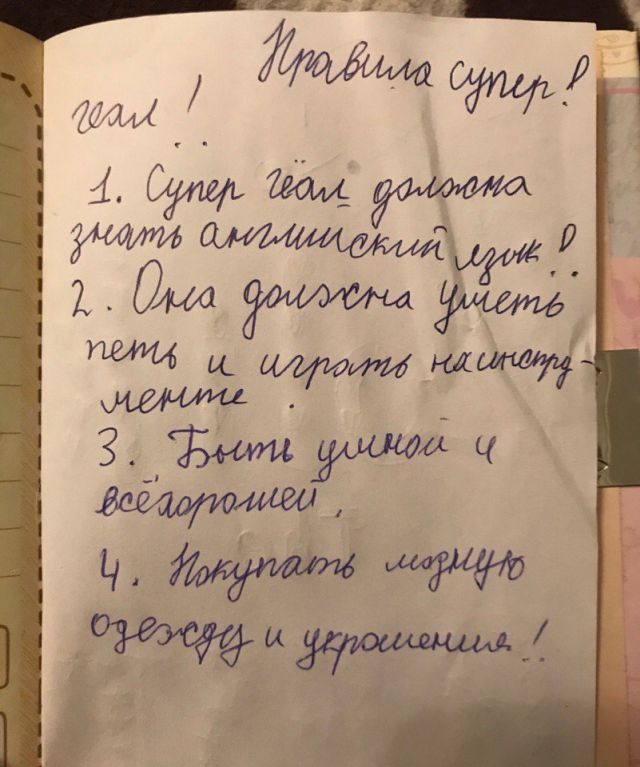 Правила супер!
геал!
1. Супер гёал должна
знать английский язык!
2. Она должна уметь
петь и играть на инстру-
менте.
3. Быть умной и
всёхорошей.
4. Покупать модную
одежду и украшения!